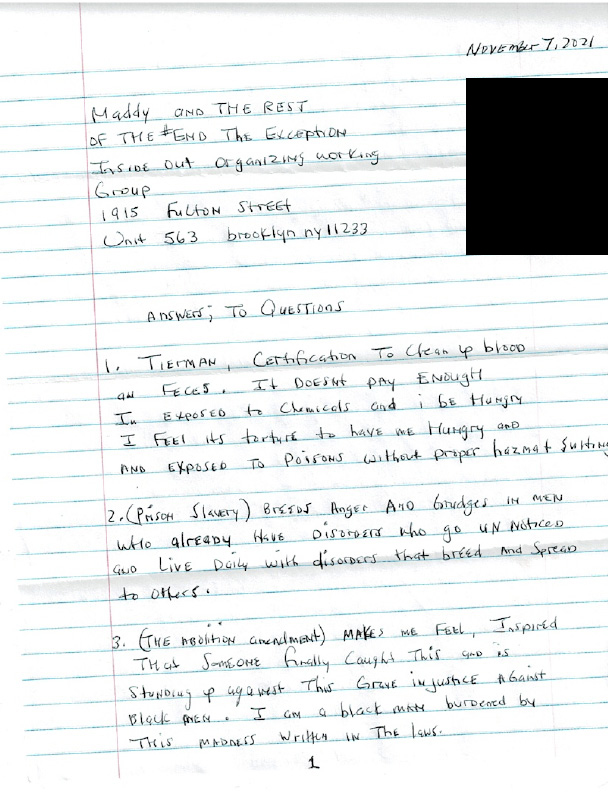 November 7, 2021
Maddy and THE REST
OF THE #END The Exception
Inside Out Organizing working
Group
1915 Fulton Street
Unit 563 brooklyn ny 11233
Answers; To Questions
1. Tierman, Certification To Clean up blood
an Feces. It Doesnt pay Enough
Im Exposed to Chemicals and i be Hungry
I Feel its torture to have me Hungry and
AND EXPOSED TO Poisons without proper hazmat Suiting
2. (Prison Slavery) Breeds Anger And Grudges in men
who already Have Disorders who go UN Noticed
and Live Daily with disorders that breed and Spread
to others.
3. (THE Abolition amendment) MAKES me Feel, Inspired
THat Someone finally Caught This and is
Stunding up against This Grave injustice Against
Black men. I am a black man burdened by
This madness Written in The laws.
1